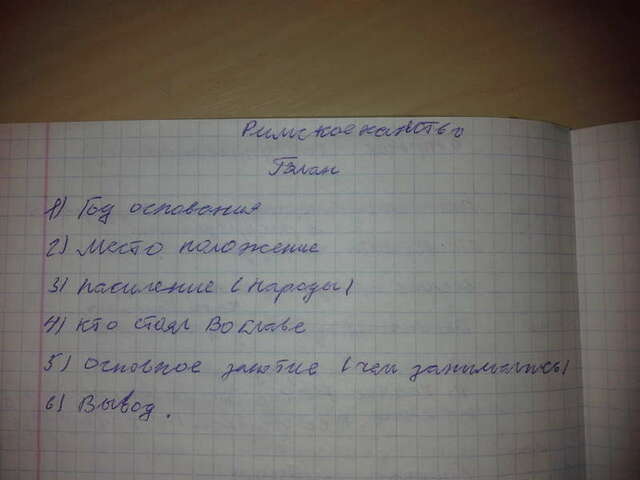 Римское нашество
План
1) Год основания
2) Место положение
3) Население (народы)
4) кто стоял во главе
5) основное занятие (чем занимались)
6) Вывод.